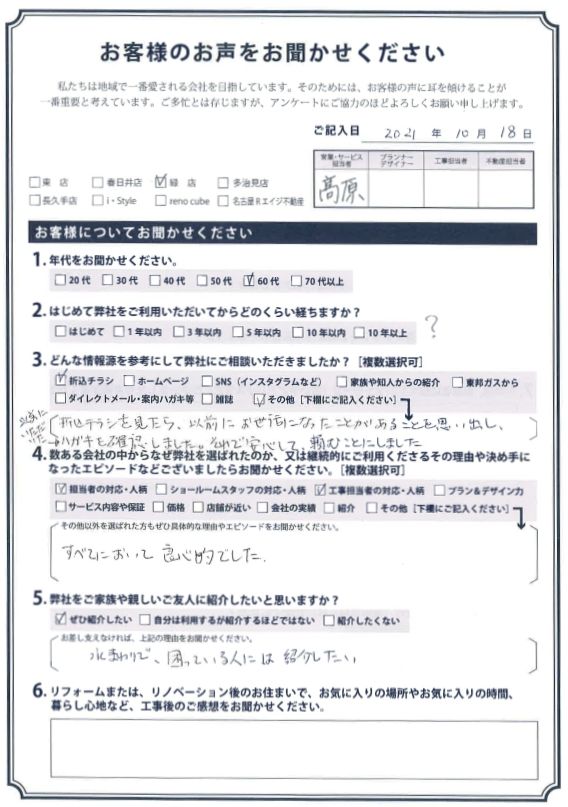 お客様のお声をお聞かせください
私たちは地域で一番愛される会社を目指しています。そのためには、お客様の声に耳を傾けることが
一番重要と考えています。ご多忙とは存じますが、アンケートにご協力のほどよろしくお願い申し上げます。
ご記入日 2021 年 10 月 18 日
営業・サービス担当者 プランナーデザイナー 工事担当者 不動産担当者
髙原
□東 店 □春日井店 ☑緑 店 □多治見店
□長久手店 □i・Style □reno cube □名古屋Rエイジ不動産
お客様についてお聞かせください
1. 年代をお聞かせください。
□20代 □30代 □40代 □50代 ☑60代 □70代以上
2. はじめて弊社をご利用いただいてからどのくらい経ちますか?
□はじめて □1年以内 □3年以内 □5年以内 □10年以内 □10年以上 ?
3. どんな情報源を参考にして弊社にご相談いただきましたか?[複数選択可]
☑折込チラシ □ホームページ □SNS(インスタグラムなど) □家族や知人からの紹介 □東邦ガスから
□ダイレクトメール・案内ハガキ等 □雑誌 ☑その他[下欄にご記入ください]
以前にいただいた
折込チラシを見たら、以前にお世話になったことがあることを思い出し、
ハガキも確認しました。それで安心して、頼むことにしました
4. 数ある会社の中からなぜ弊社を選ばれたのか、又は継続的にご利用くださるその理由や決め手に
なったエピソードなどございましたらお聞かせください。[複数選択可]
☑担当者の対応・人柄 □ショールームスタッフの対応・人柄 ☑工事担当者の対応・人柄 □プラン&デザイン力
□サービス内容や保証 □価格 □店舗が近い □会社の実績 □紹介 □その他[下欄にご記入ください]
その他以外を選ばれた方もぜひ具体的な理由やエピソードをお聞かせください。
すべてにおいて良心的でした。
5. 弊社をご家族や親しいご友人に紹介したいと思いますか?
☑ぜひ紹介したい □自分は利用するが紹介するほどではない □紹介したくない
お差し支えなければ、上記の理由をお聞かせください。
水まわりで、困っている人には紹介したい
6. リフォームまたは、リノベーション後のお住まいで、お気に入りの場所やお気に入りの時間、
暮らし心地など、工事後のご感想をお聞かせください。